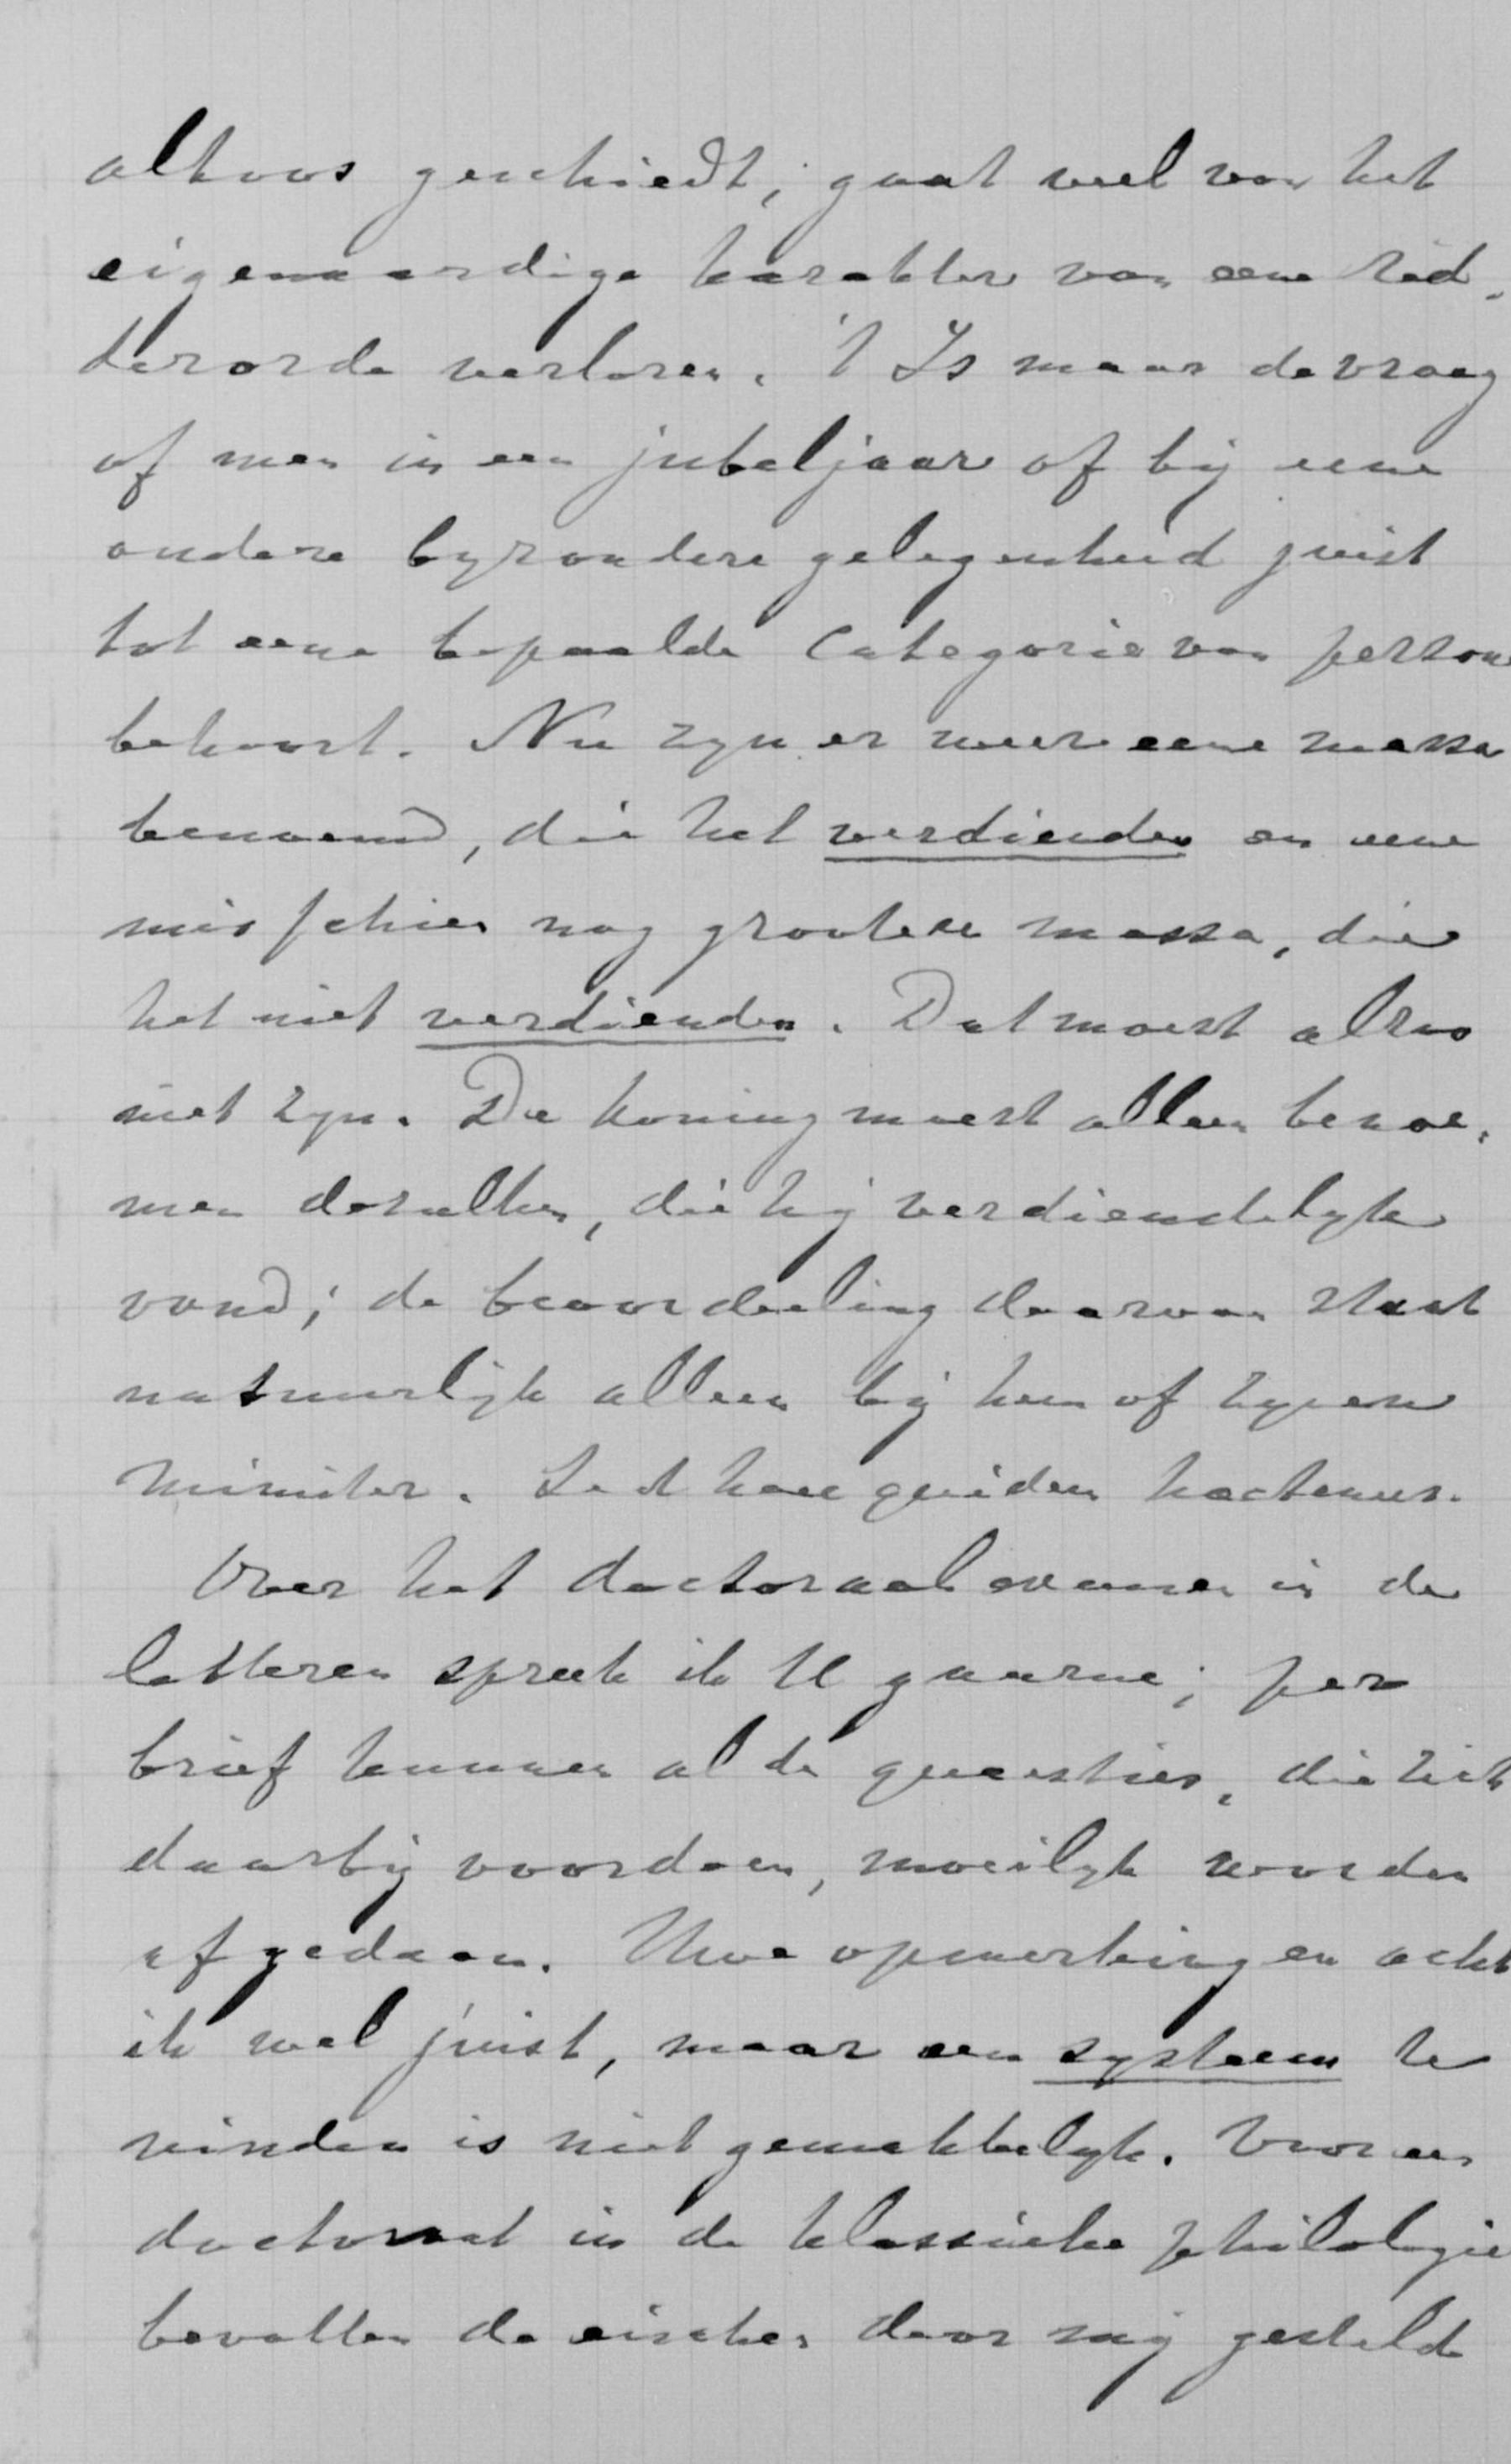 altoos geschiedt, gaat veel van het
eigenaardige karakter van eene rid-
derorde verloren. 't Is maar de vraag
of men in een jubeljaar of bij eene
andere byzondere gelegenheid juist
tot eene bepaalde Categorie van persone
behoort. Nu zyn er weer eene massa
benoemd, die het verdienden en eene
misschien nog grootere massa, die
het niet verdienden. Dat moest alzoo
niet zyn. De koning moest alleen benoe-
men dezulken, die hij verdienstelyk
vond; de beoordeeling daarvan staat
natuurlijk alleen bij hem of zynen
Minister. Sed haec quidem hactenus.
Over het doctoraal examen in de
letteren spreek ik U gaarne; per
brief kunnen al de quaesties, die zich
daarbij voordoen, moeilyk worden
afgedaan. Uwe opmerkingen acht
ik wel juist, maar een systeem te
vinden is niet gemakkelyk. Voor een
doctoraat in de klassieke philologie
bevallen de eischen door mij gesteld